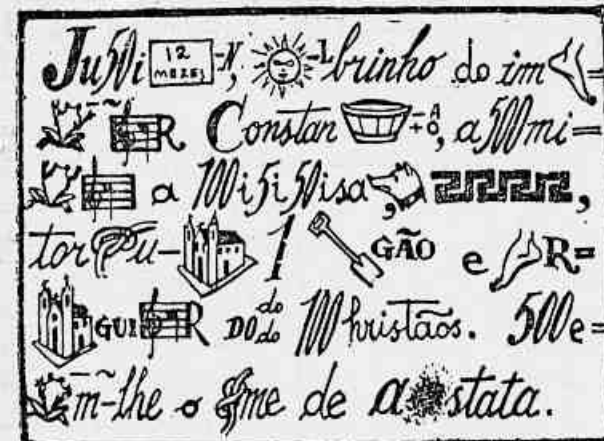 Ju50i 12 MEZES -N, -L brinho do im
R Constan -A +O, a500mi=
a 100i5i50isa, ,
tor u- 1 GÃO e R=
GUI R DO do do 100hristãos. 500e=
m-lhe o me de a stata.